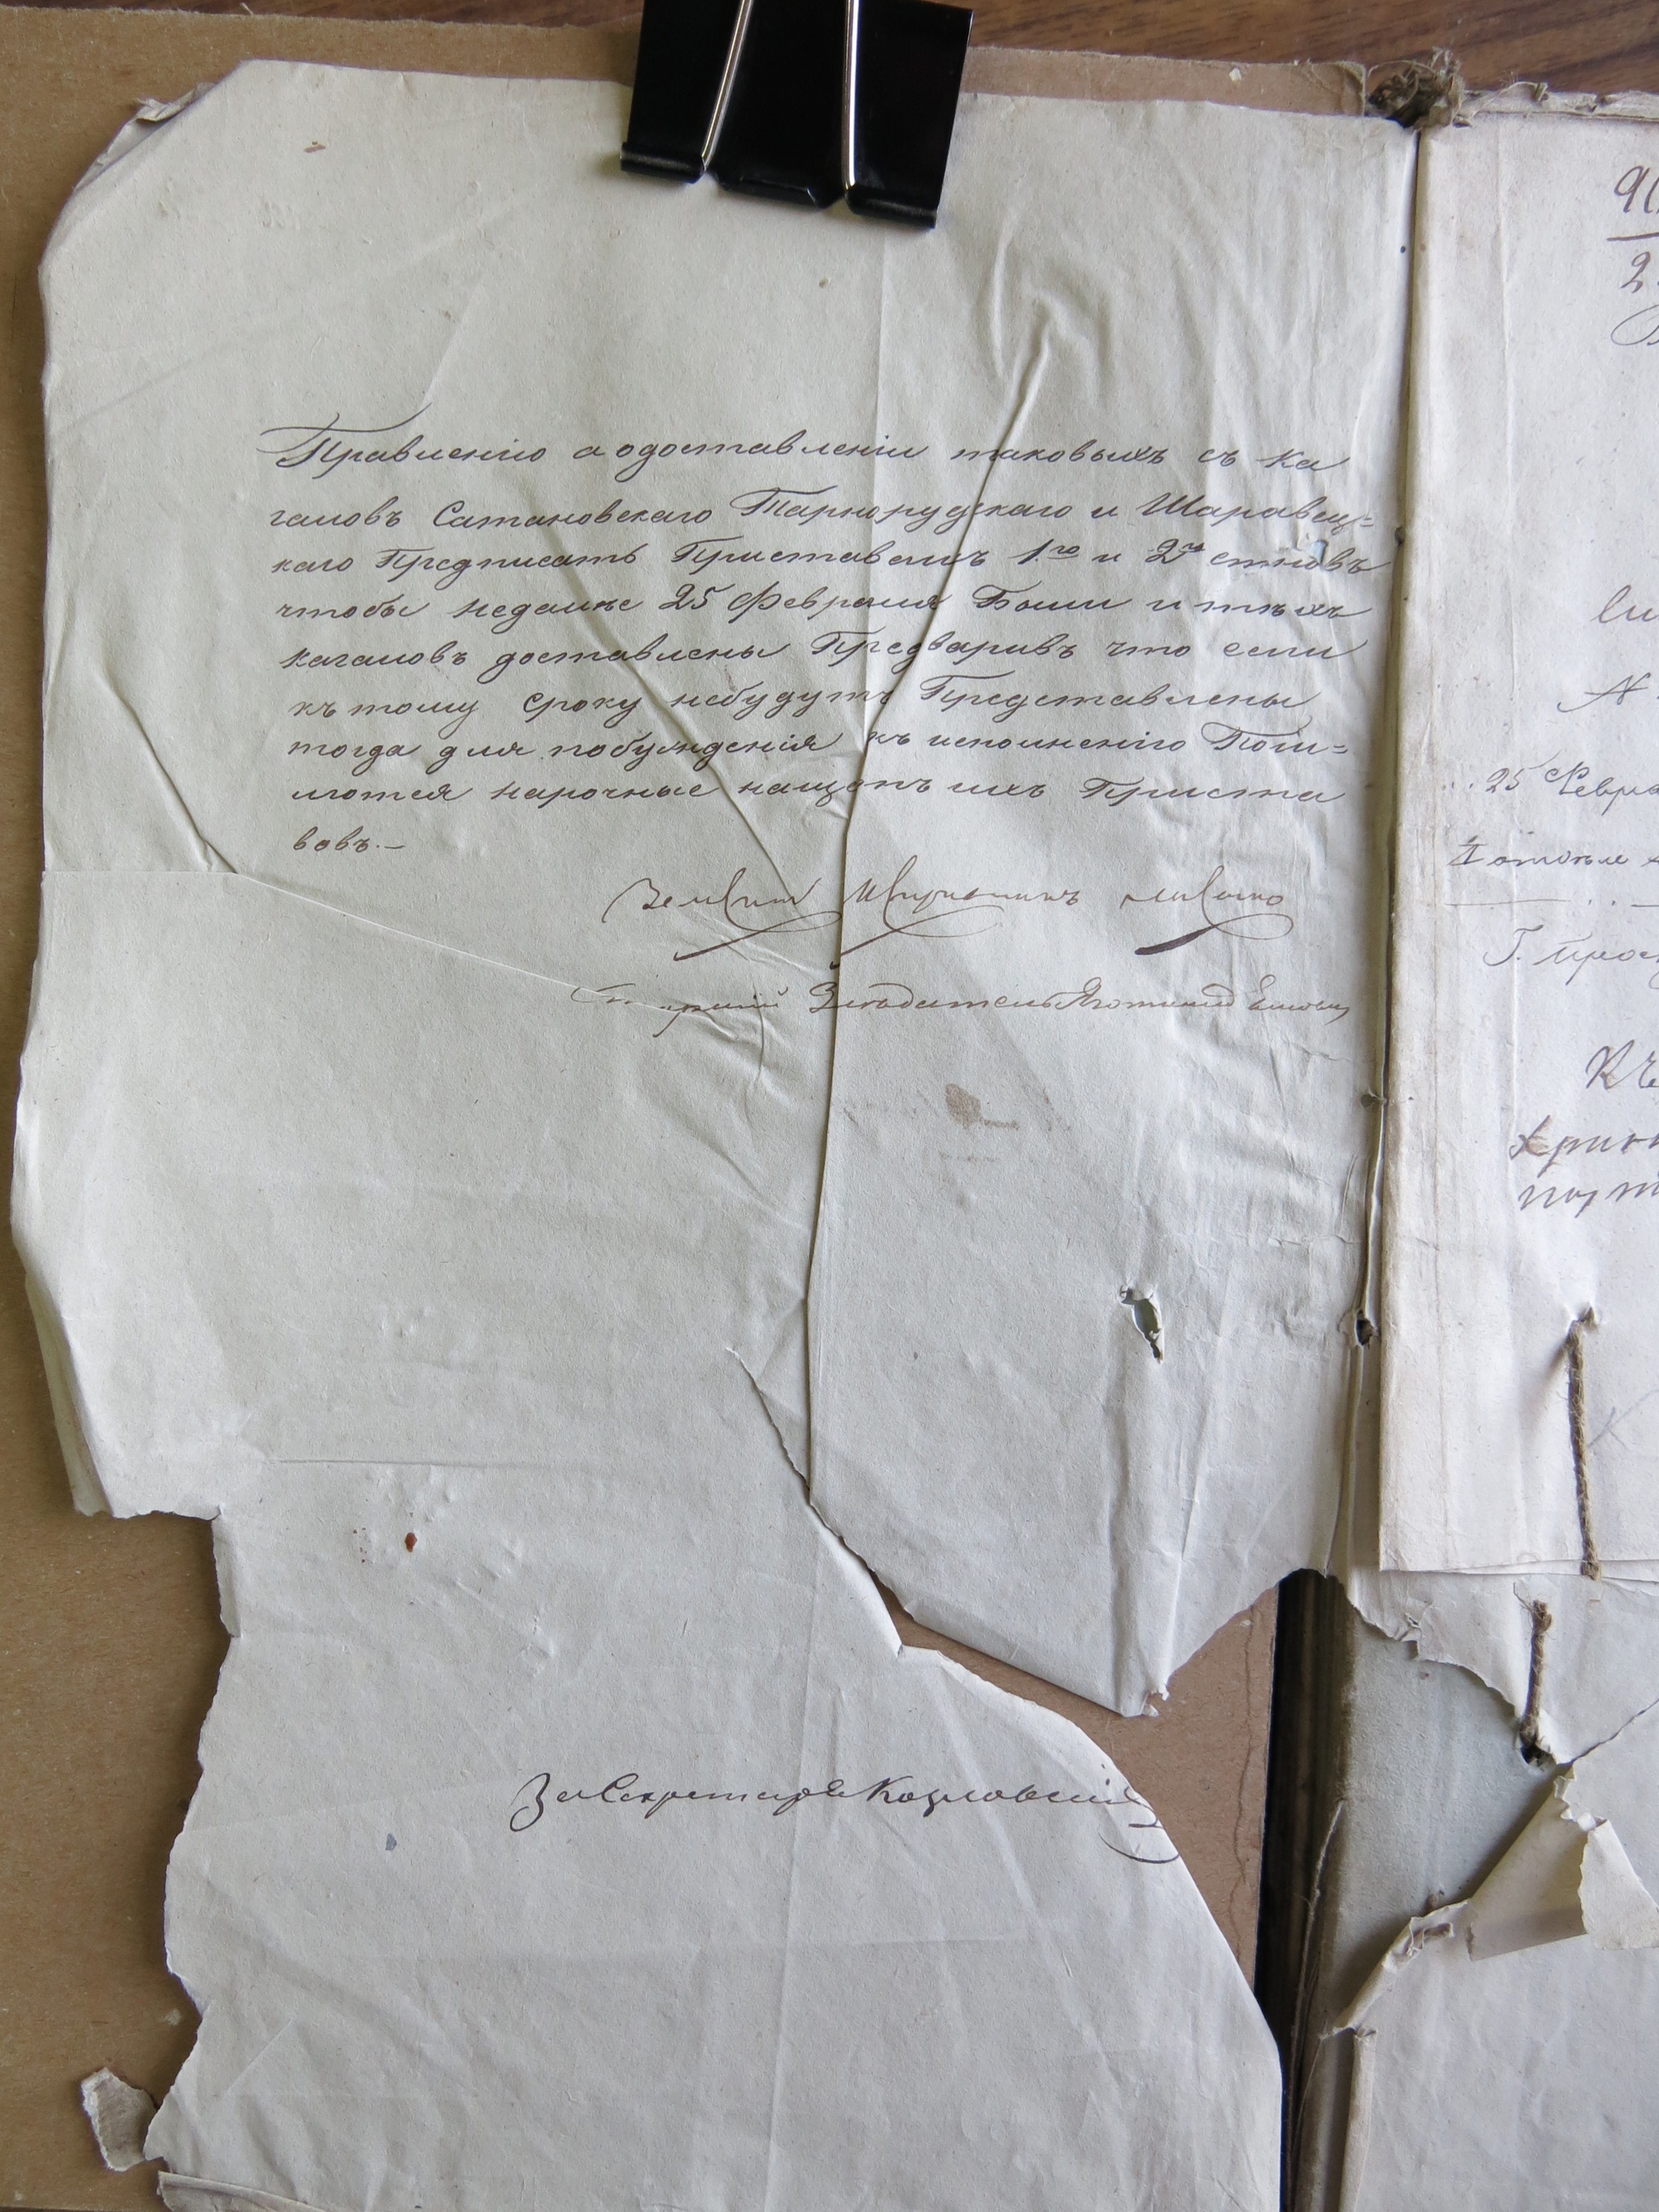 Правленію а одоставленіи таковыхъ съ ка
галовъ Сатановскаго Тарнорудскаго и Шаравец=
каго Предписать Приставамъ 1го и 2го становъ
чтобы недалѣе 25 Февраля были и тѣхъ
кагаловъ доставлены Предваривъ что если
къ тому сроку небудутъ Представлены
тогда для побужденія къ исполненію Пош=
лются нарочные нащетъ ихъ Приста
вовъ.—
Земскій Исправникъ
Засѣдатель
За Секретаря Козловскій
25 Февра
Къ